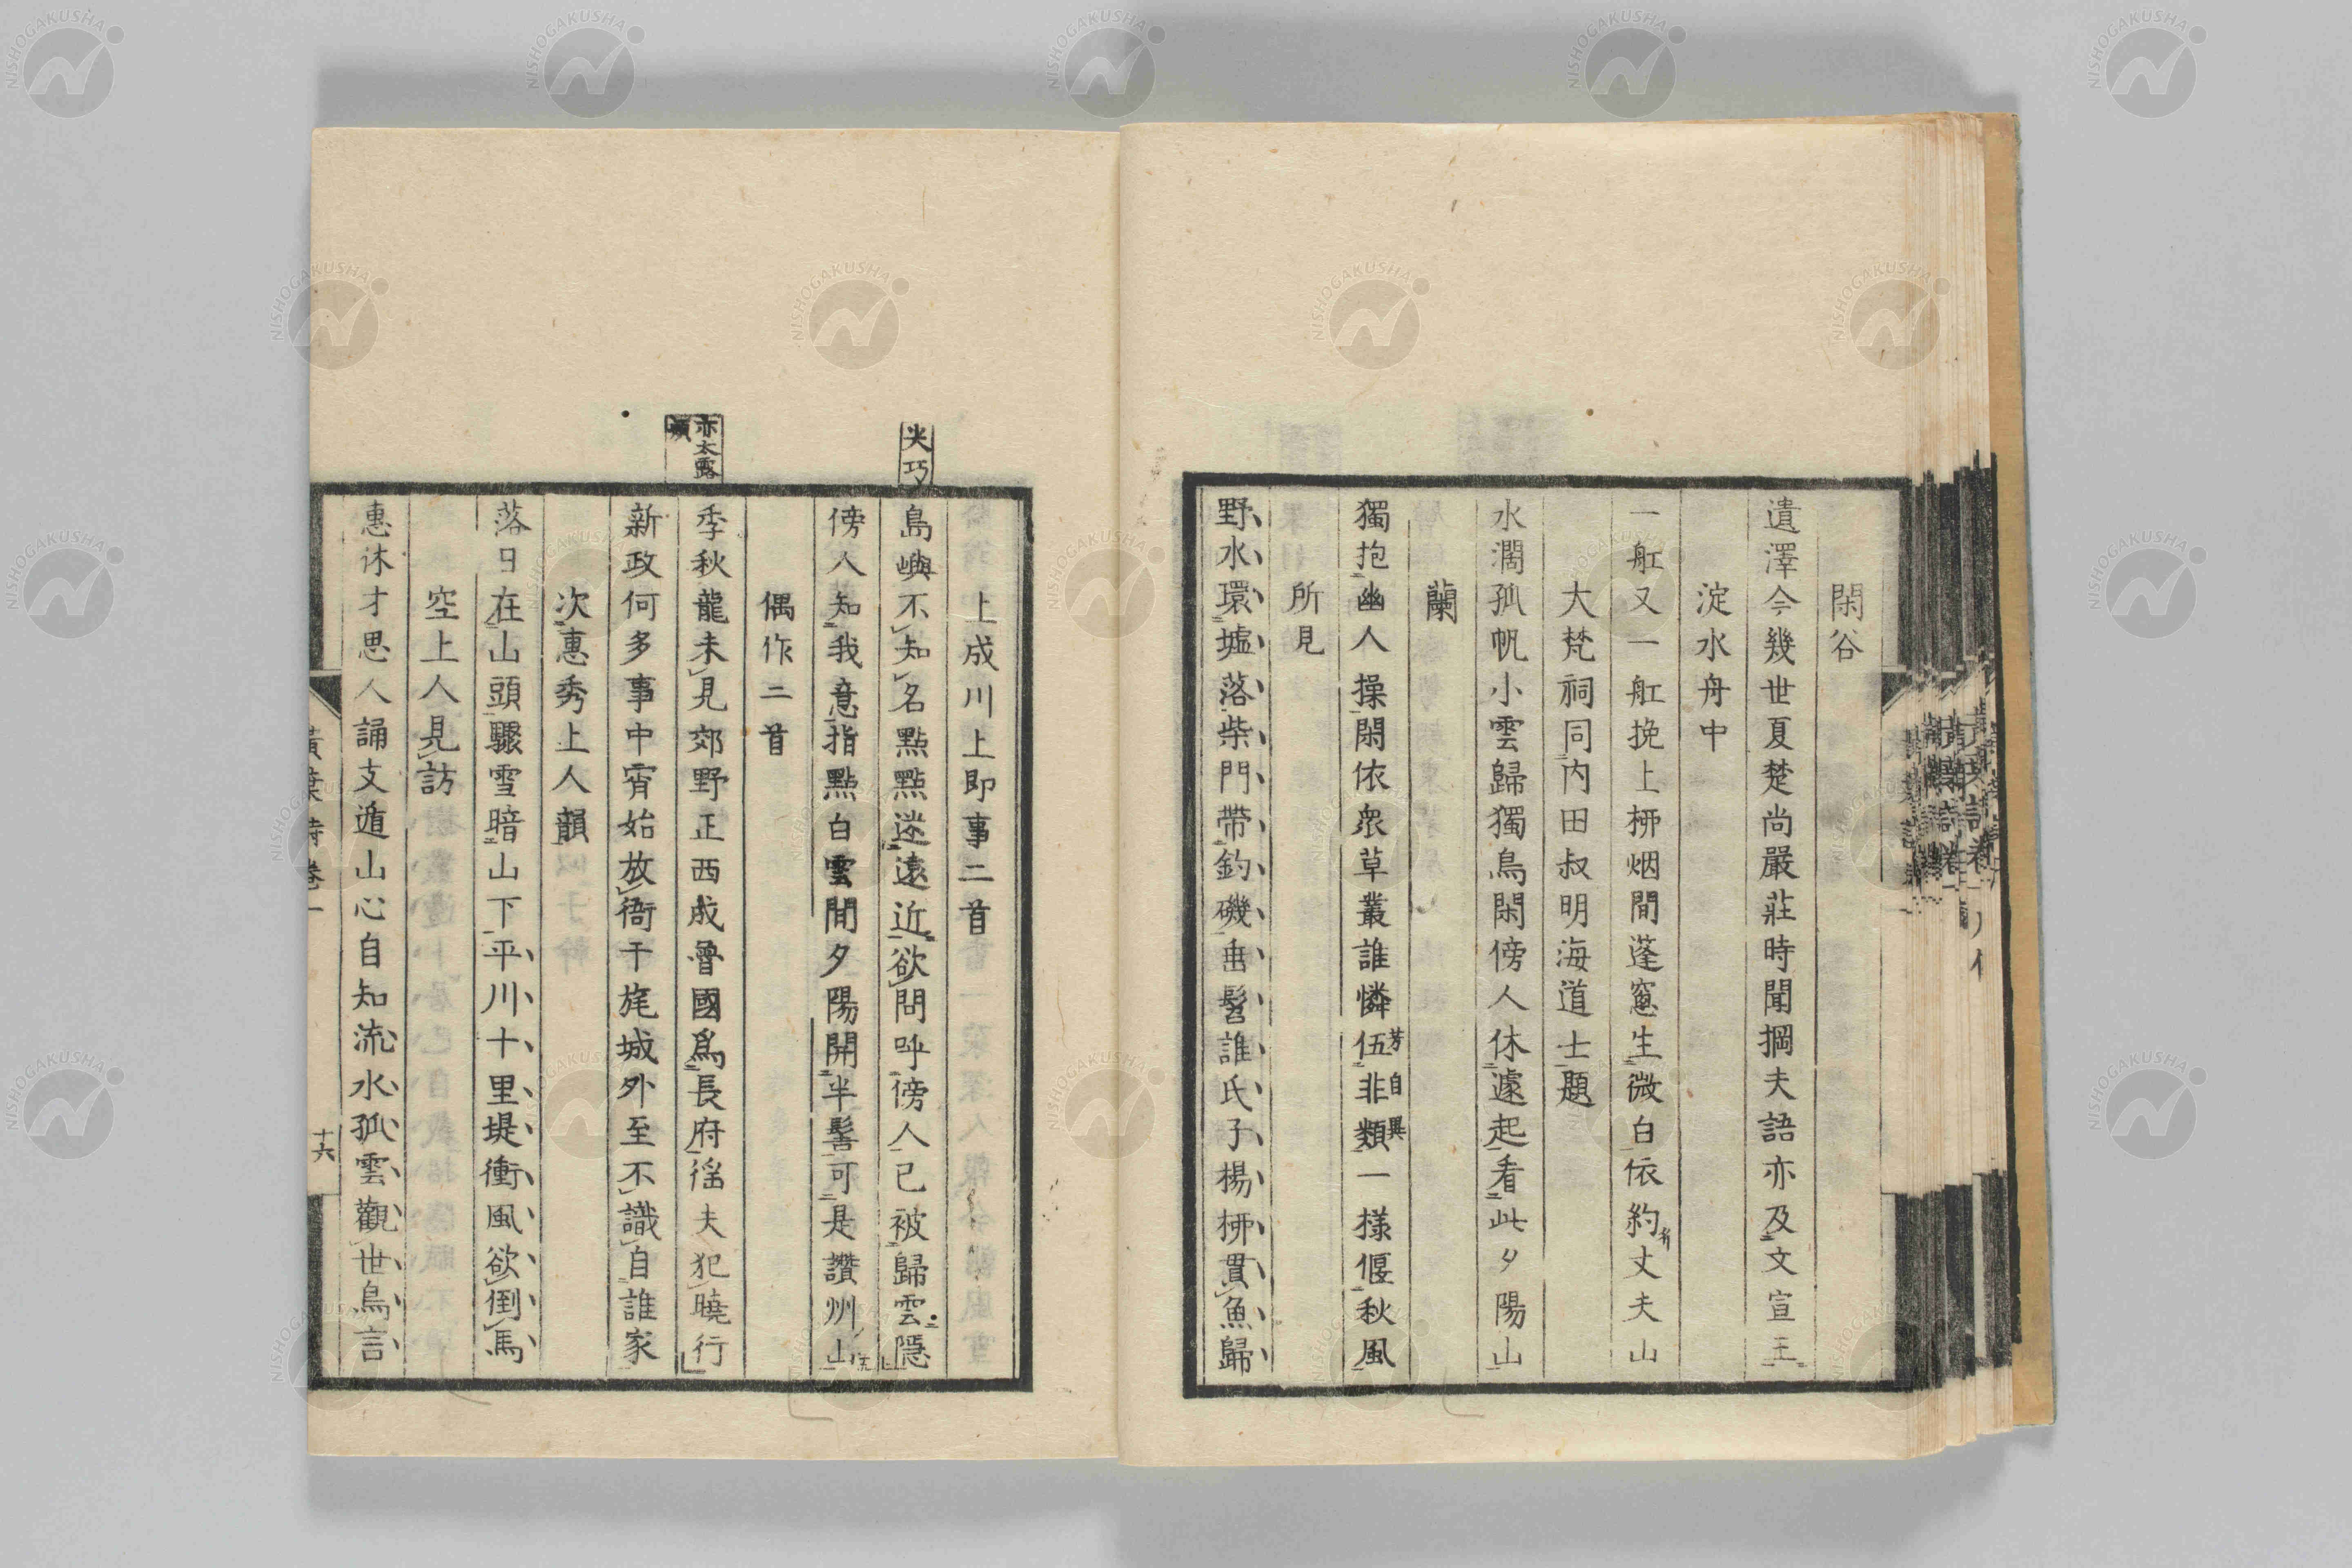 閑谷
遺澤今幾世夏楚尚嚴莊時聞掆夫語亦及文宣王
淀水舟中
一舡又一舡挽上栁烟間蓬窻生微白依約丈夫山
大梵祠同内田叔明海道士題
水濶孤帆小雲歸獨鳥閑傍人休遽起看此夕陽山
蘭
獨抱幽人操閑依衆草叢誰憐伍非類一様偃秋風
芳自異
所見
野水環墟落柴門帶釣磯垂髫誰氏子楊栁貫魚歸
上成川上即事二首
尖巧
島嶼不知名點點迷遠近欲問呼傍人已被歸雲隱
傍人知我意指點白雲間夕陽開半髻可是讚州山
偶作二首
亦太露
季秋龍未見郊野正西成魯國爲長府徭夫犯曉行
新政何多事中宵始放衙干旄城外至不識自誰家
次惠秀上人韻
落日在山頭驟雪暗山下平川十里堤衝風欲倒馬
空上人見訪
惠休才思人誦支遁山心自知流水孤雲觀世鳥言
黃葉詩卷一
十六
NISHOGAKUSHA